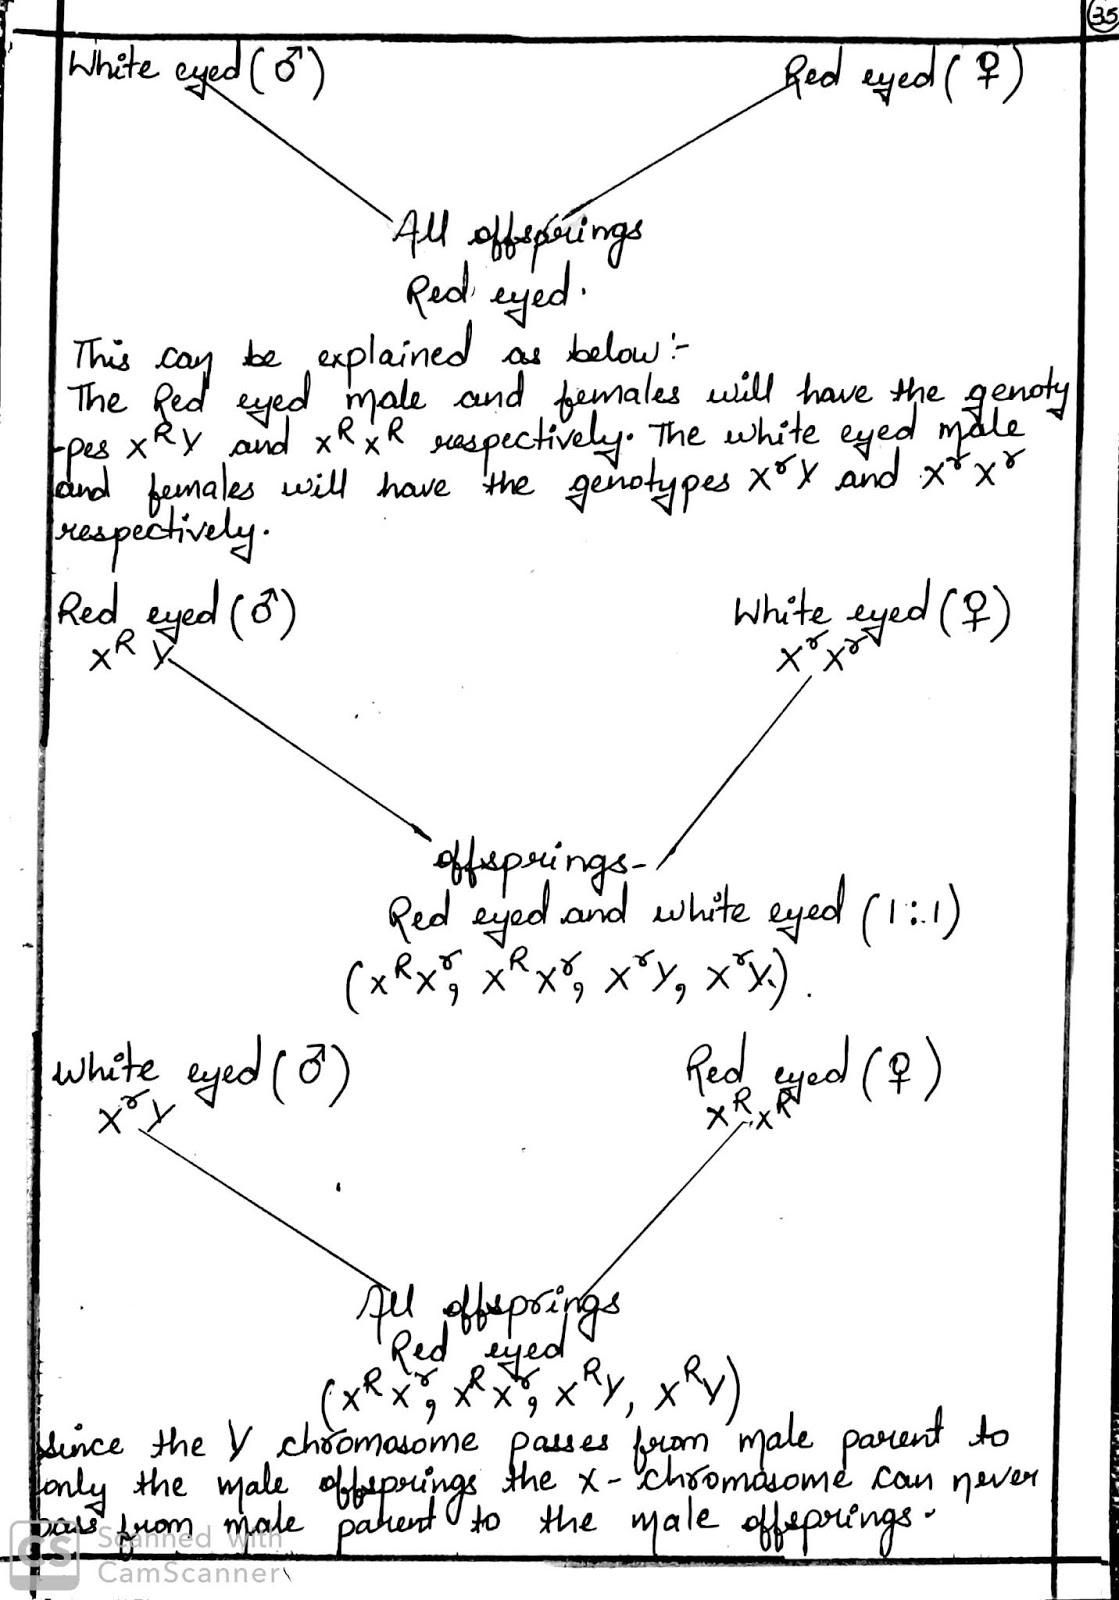 35
White eyed (♂) Red eyed (♀)
All offsprings
Red eyed.
This can be explained as below :-
The Red eyed male and females will have the genoty
-pes X^R Y and X^R X^R respectively. The white eyed male
and females will have the genotypes X^r Y and X^r X^r
respectively.
Red eyed (♂) White eyed (♀)
X^R Y X^r X^r
offsprings-
Red eyed and white eyed (1:1)
(X^R X^r, X^R X^r, X^r Y, X^r Y).
White eyed (♂) Red eyed (♀)
X^r Y X^R X^R
All offsprings
Red eyed
(X^R X^r, X^R X^r, X^R Y, X^R Y)
Since the Y chromosome passes from male parent to
only the male offsprings the X-chromosome can never
pass from male parent to the male offsprings.
CS Scanned with
CamScanner